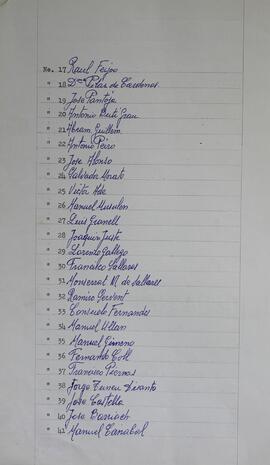 No. 17 Raul Feijoo
" 18 Dña Pilar de Cardenas
" 19 Jose Pantoja
" 20 Antonio Grau
" 21 Abram Guillem
" 22 Antonio Peiro
" 23 Jose Alonso
" 24 Salvador Morato
" 25 Victor
" 26 Manuel
" 27 Luis Granell
" 28 Joaquin Juste
" 29 Lorenzo Gallego
" 30 Francisco Sallares
" 31 Monserrat M. de Sallares
" 32 Ramiro Servent
" 33 Consuelo Fernandes
" 34 Manuel Ullan
" 35 Manuel Gimeno
" 36 Fernando Coll
" 37 Francisco Piernas
" 38 Jorge
" 39 Jose Castella
" 40 Jose Barriach
" 41 Manuel Canabal